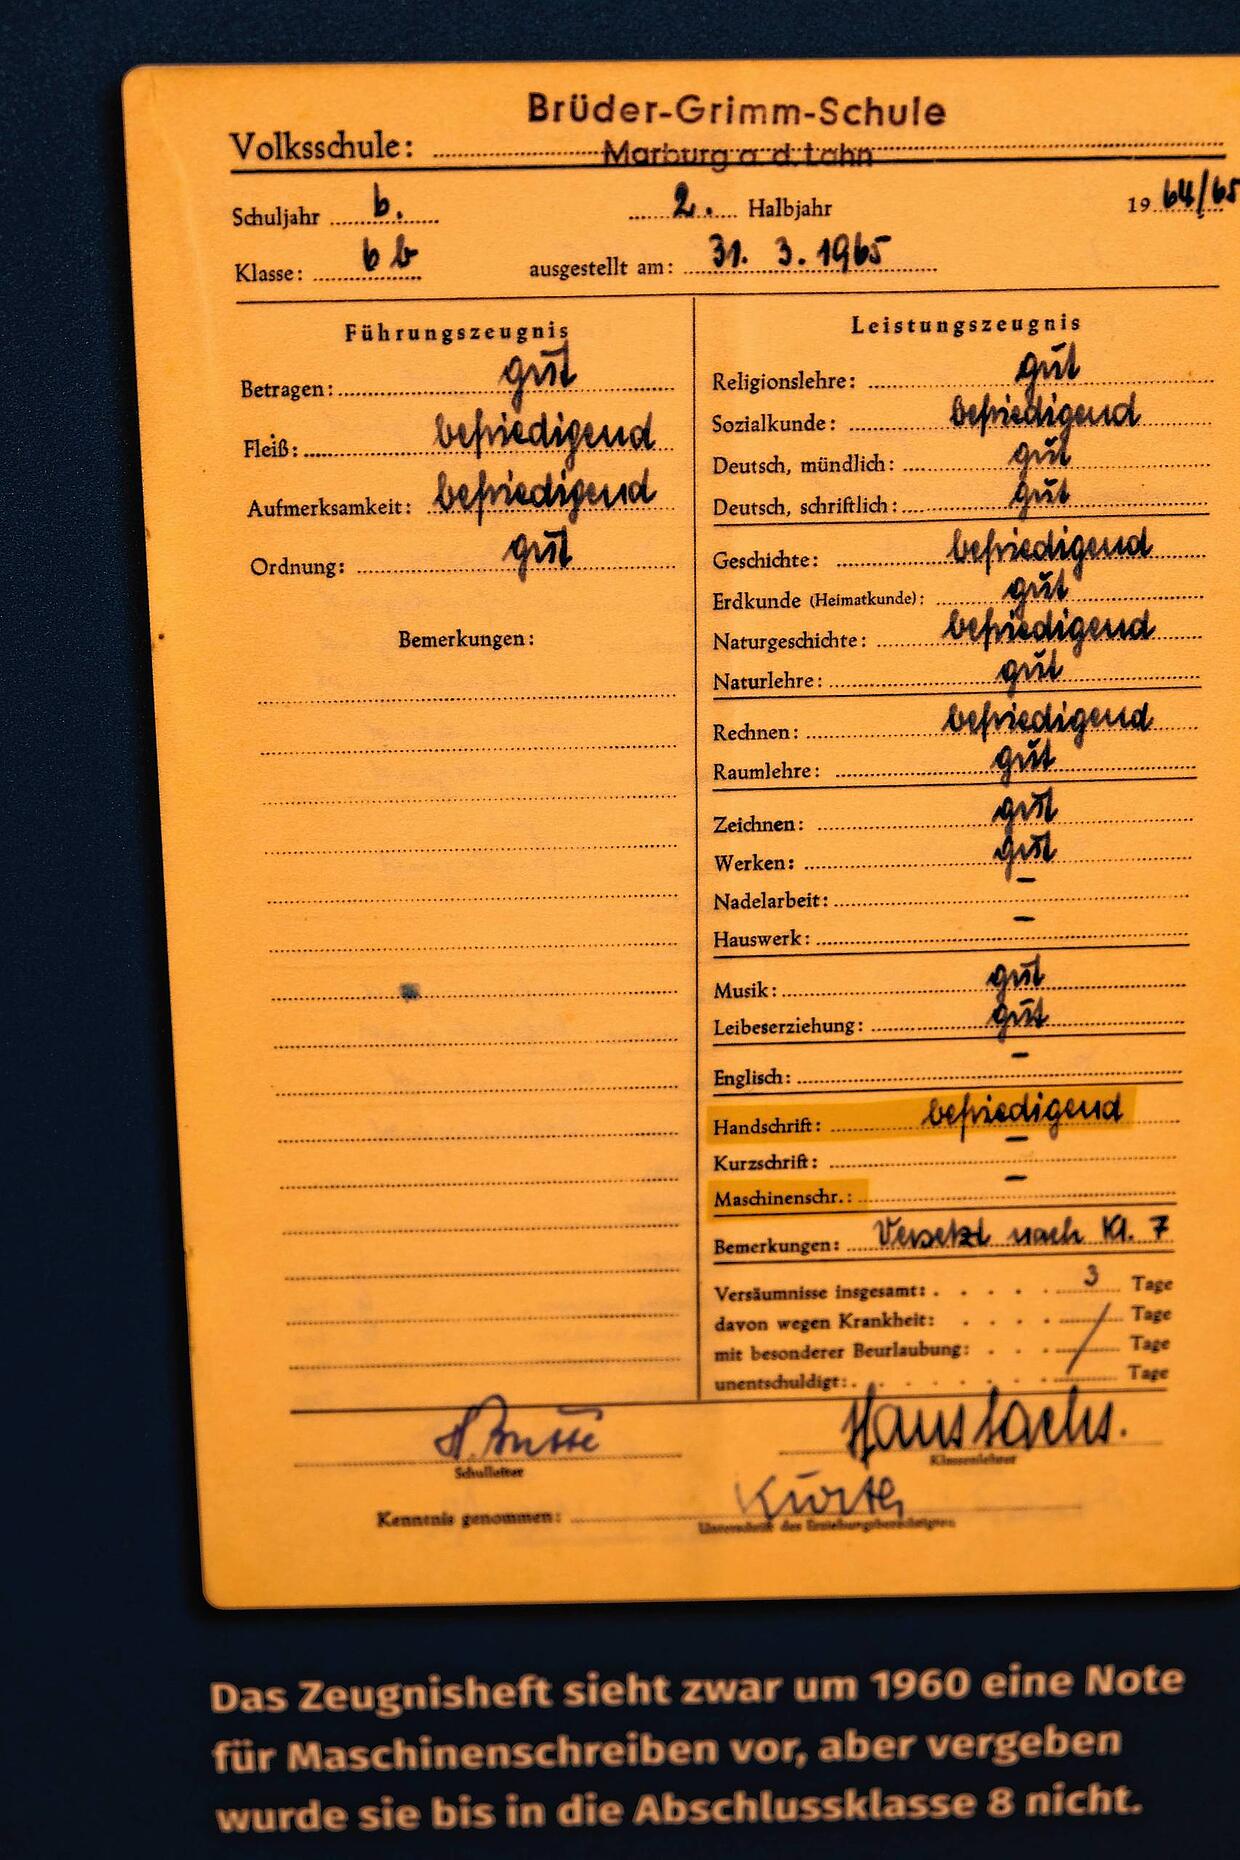 Brüder-Grimm-Schule
Volksschule: Marburg a. d. Lahn
Schuljahr 6. 2. Halbjahr 1964/65
Klasse: 6 b ausgestellt am: 31. 3. 1965
Führungszeugnis
Betragen: gut
Fleiß: befriedigend
Aufmerksamkeit: befriedigend
Ordnung: gut
Bemerkungen:
Leistungszeugnis
Religionslehre: gut
Sozialkunde: befriedigend
Deutsch, mündlich: gut
Deutsch, schriftlich: gut
Geschichte: befriedigend
Erdkunde (Heimatkunde): gut
Naturgeschichte: befriedigend
Naturlehre: gut
Rechnen: befriedigend
Raumlehre: gut
Zeichnen: gut
Werken: gut
Nadelarbeit: –
Hauswerk: –
Musik: gut
Leibeserziehung: gut
Englisch: –
Handschrift: befriedigend
Kurzschrift: –
Maschinenschr.: –
Bemerkungen: Versetzt nach Kl. 7
Versäumnisse insgesamt: 3 Tage
davon wegen Krankheit: Tage
mit besonderer Beurlaubung: / Tage
unentschuldigt: Tage
H. Busse Hans Sachs.
Schulleiter Klassenlehrer
Kenntnis genommen: Kurth
Unterschrift des Erziehungsberechtigten
Das Zeugnisheft sieht zwar um 1960 eine Note
für Maschinenschreiben vor, aber vergeben
wurde sie bis in die Abschlussklasse 8 nicht.